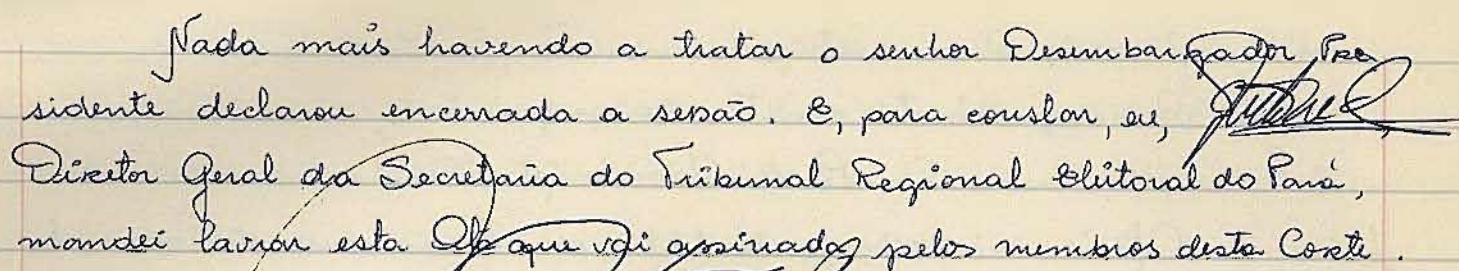 Nada mais havendo a tratar o senhor Desembargador Pre
sidente declarou encerrada a sessão. E, para constar, eu,
Diretor Geral da Secretaria do Tribunal Regional Eleitoral do Pará,
mandei lavrar esta Ata que vai assinada pelos membros desta Corte.